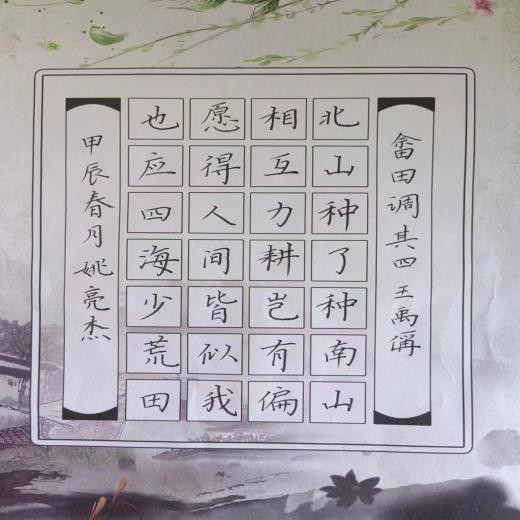 畬田调其四王禹偁
北山种了种南山
相互力耕岂有偏
愿得人间皆似我
也应四海少荒田
甲辰春月姚亮杰